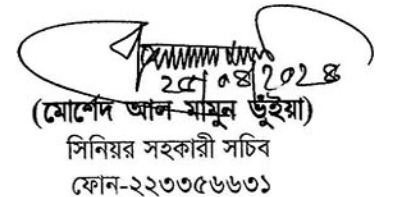 ২৫/০৪/২০২৪
(মোর্শেদ আল মামুন ভুঁইয়া)
সিনিয়র সহকারী সচিব
ফোন-২২৩৩৫৬৬৩১